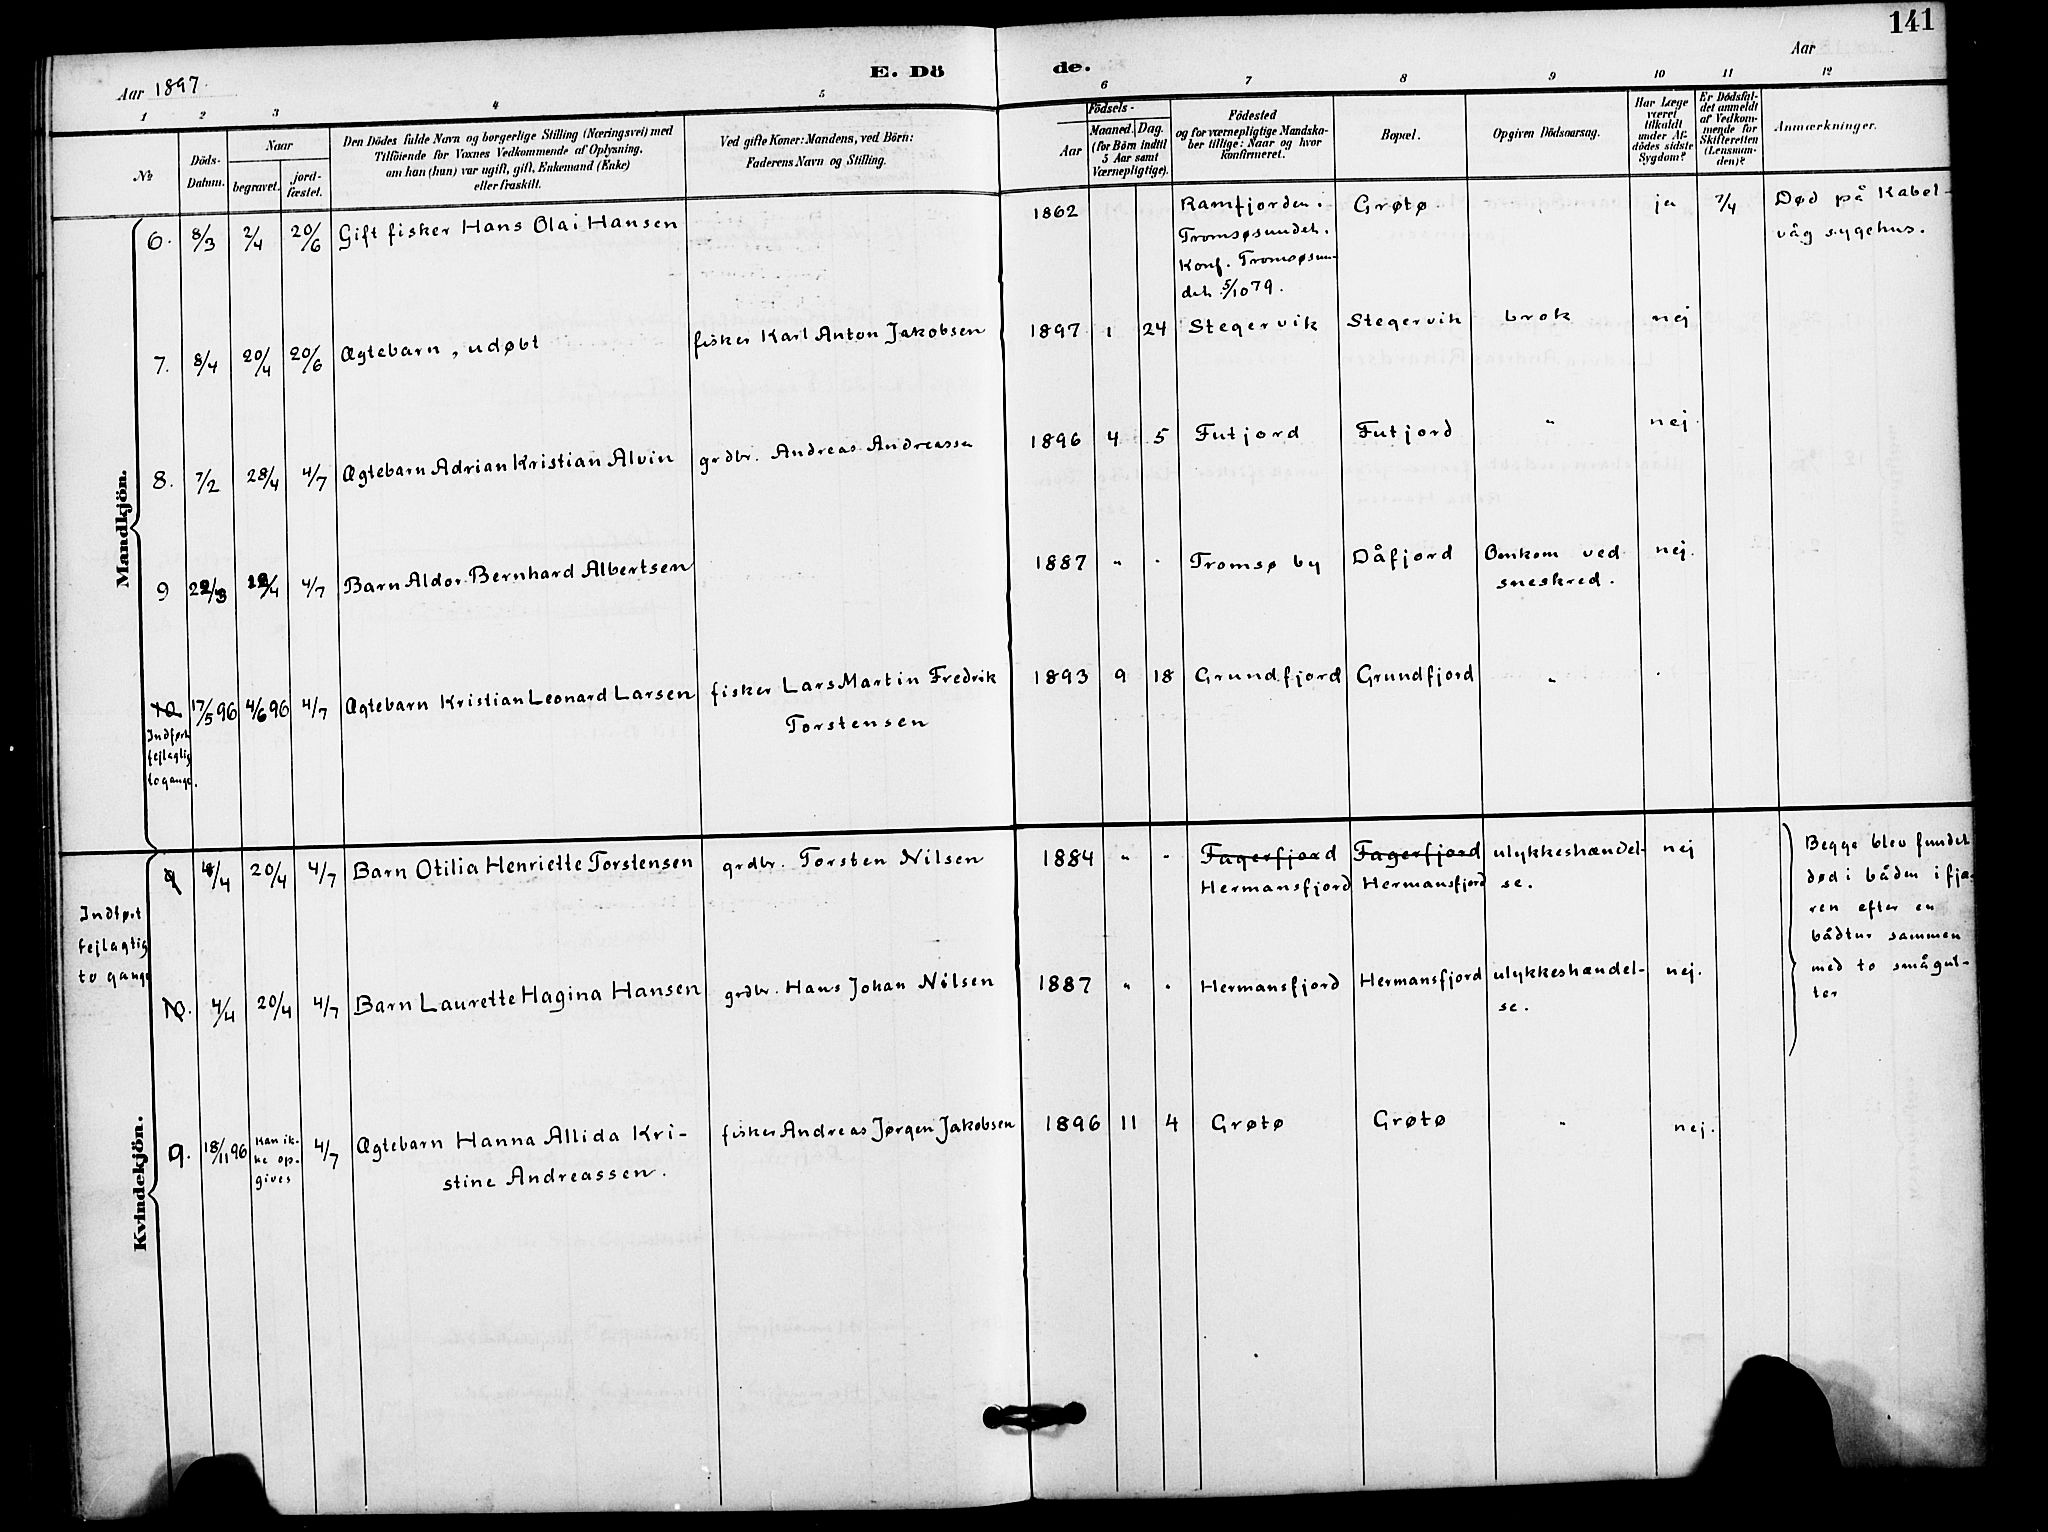 141
Aar 1897. E. Dö de. Aar
1 2 3 4 5 6 7 8 9 10 11 12
№
Döds-
Datum.
Naar
begravet.
jord-
fæstet.
Den Dödes fulde Navn og borgerlige Stilling (Næringsvei) med
Tilföiende for Voxnes Vedkommende af Oplysning,
om han (hun) var ugift, gift, Enkemand (Enke)
eller fraskilt.
Ved gifte Koner: Mandens, ved Börn:
Faderens Navn og Stilling.
Födsels-
Aar
Maaned. Dag.
(for Börn indtil
5 Aar samt
Værnepligtige).
Födested
og for værnepligtige Mandska-
ber tillige: Naar og hvor
konfirmeret.
Bopæl.
Opgiven Dödsaarsag.
Har Læge
været
tilkaldt
under Af-
dödes sidste
Sygdom?
Er Dödsfal-
det anmeldt
af Vedkom-
mende for
Skifteretten
(Lensman-
den)?
Anmærkninger.
Mandkjön.
6. 8/3 2/4 20/6 Gift fisker Hans Olai Hansen 1862 Ramfjorden i Grøtø " ja 7/4 Død på Kabel-
Tromsøsundet. våg sygehus.
Konf. Tromsøsun-
det 5/10 79.
7. 8/4 20/4 20/6 Ægtebarn, udøbt fisker Karl Anton Jakobsen 1897 1 24 Stegervik Stegervik brok nej
8. 7/2 28/4 4/7 Ægtebarn Adrian Kristian Alvin grdbr. Andreas Andreassen 1896 4 5 Futjord Futjord " nej.
9 22/3 12/4 4/7 Barn Aldor Bernhard Albertsen 1887 " " Tromsø by Dåfjord Omkom ved nej.
sneskred.
10. 17/5 96 4/6 96 4/7 Ægtebarn Kristian Leonard Larsen fisker Lars Martin Fredrik 1893 9 18 Grundfjord Grundfjord " .
Torstensen
Indført
fejlagtig
to gange.
Kvindekjön.
9 4/4 20/4 4/7 Barn Otilia Henriette Torstensen grdbr. Torsten Nilsen 1884 " " Fagerfjord Fagerfjord ulykkeshændel- nej Begge blev fundet
Hermansfjord Hermansfjord se. død i båden i fjæ-
Indført ren efter en
fejlagtig bådtur sammen
to gange med to smågut-
ter
10. 4/4 20/4 4/7 Barn Laurette Hagina Hansen grdbr. Hans Johan Nilsen 1887 " " Hermansfjord Hermansfjord ulykkeshændel- nej.
se.
9. 18/11 96 Kan ik- 4/7 Ægtebarn Hanna Allida Kri- fisker Andreas Jørgen Jakobsen 1896 11 4 Grøtø Grøtø " nej.
ke op-
gives stine Andreassen.